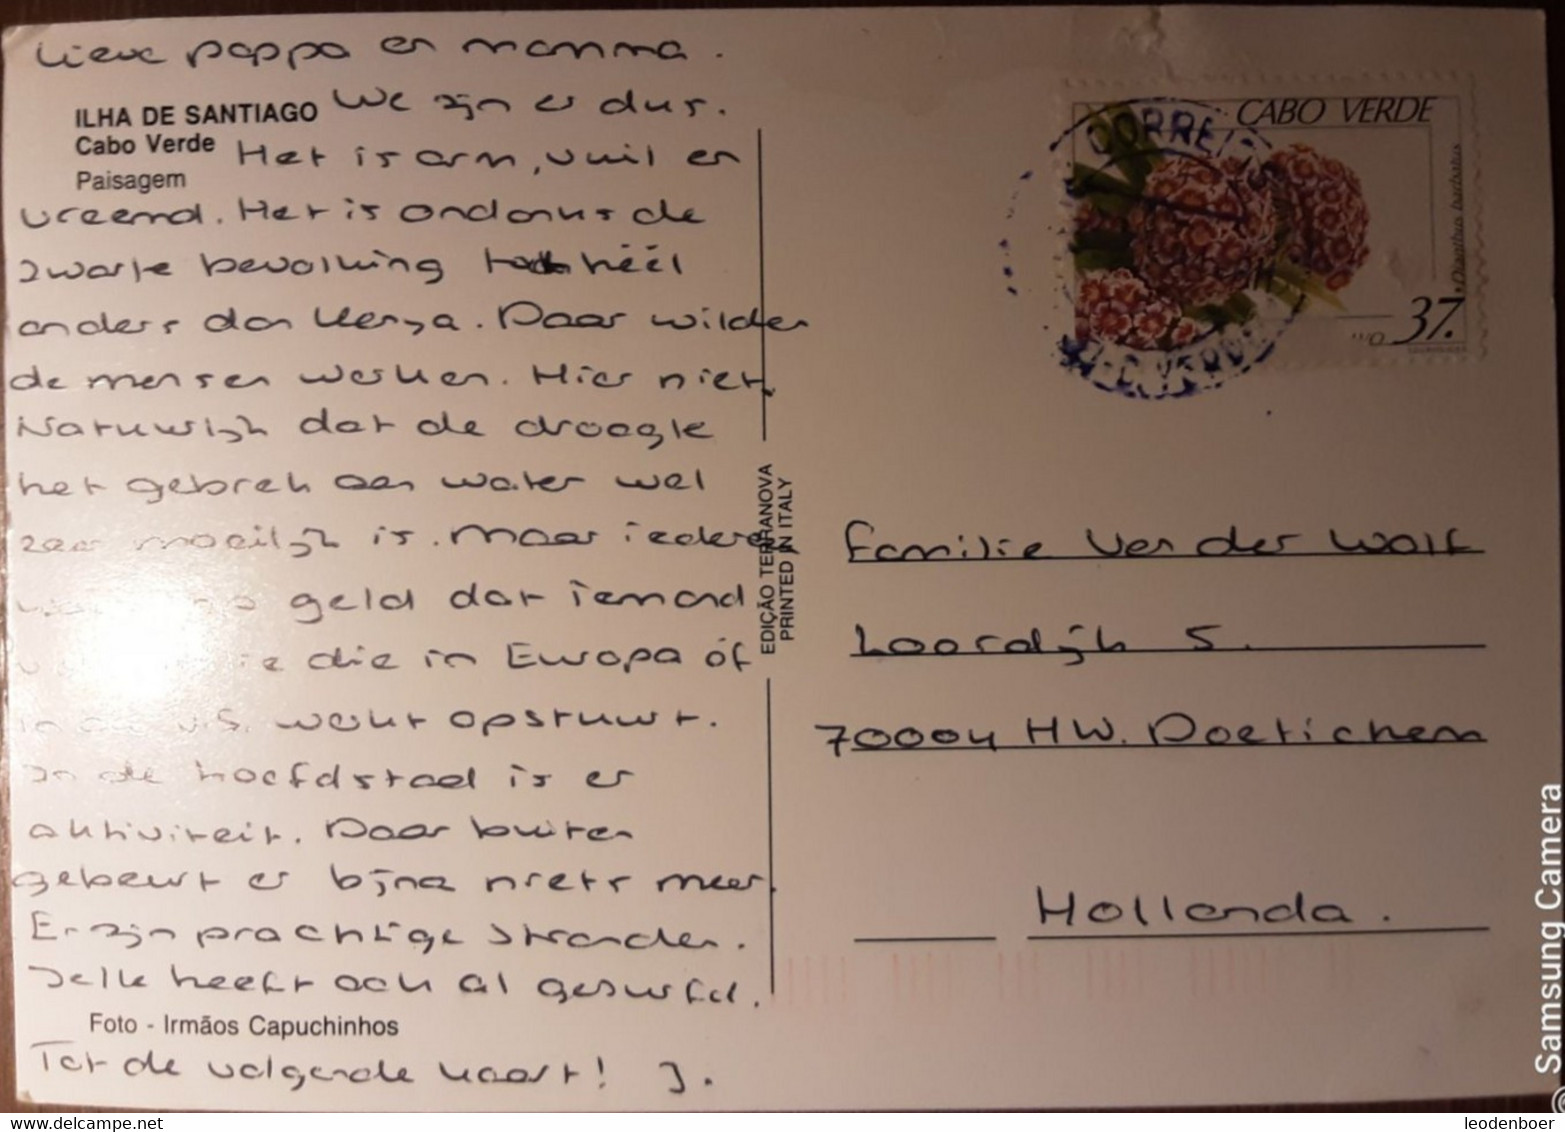 Lieve pappa en mamma.
ILHA DE SANTIAGO
Cabo Verde
Paisagem
We zijn er dus.
Het is arm, vuil en
vreemd. Het is ondanks de
zwarte bevolking héél
anders dan Kenya. Daar wilden
de mensen werken. Hier niet.
Natuurlijk dat de droogte
het gebrek aan water wel
zeer moeilijk is. Maar iedereen
geld dat iemand
die in Europa óf
in de U.S. werkt opstuurt.
In de hoofdstad is er
aktiviteit. Daar buiten
gebeurt er bijna niets meer.
Er zijn prachtige stranden.
Jelle heeft ook al gesurfd.
Foto - Irmãos Capuchinhos
Tot de volgende kaart! J.
EDIÇÃO TERRANOVA
PRINTED IN ITALY
CABO VERDE
CORREIOS
Dianthus barbatus
37.
Familie Van der Wolf
Loordijk 5.
70004 HW. Doetichem
Hollanda.
Samsung Camera
leodenboer